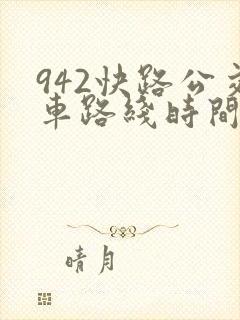 942快路公交
車路綫時間
晴月